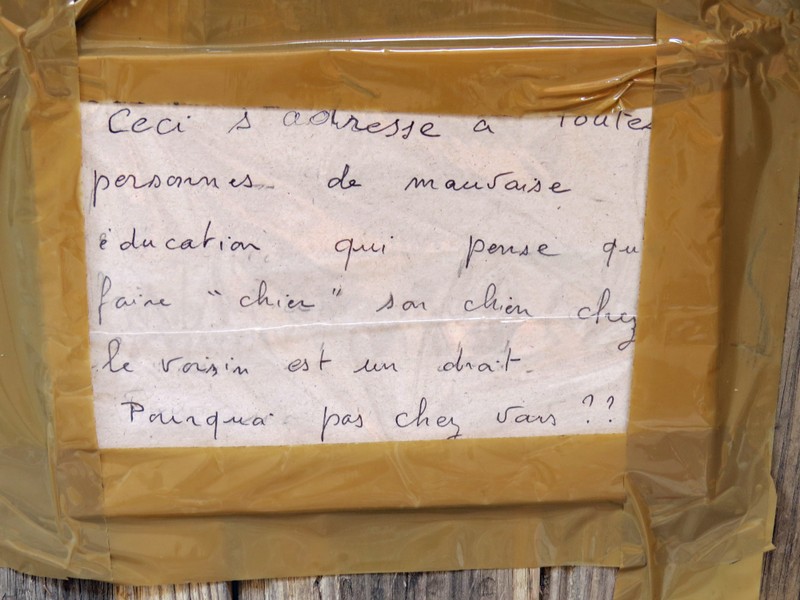 Ceci s adresse a Toutes
personnes de mauvaise
éducation qui pense qu
faire "chier" son chien chez
le voisin est un droit.
Pourquoi pas chez vous ??